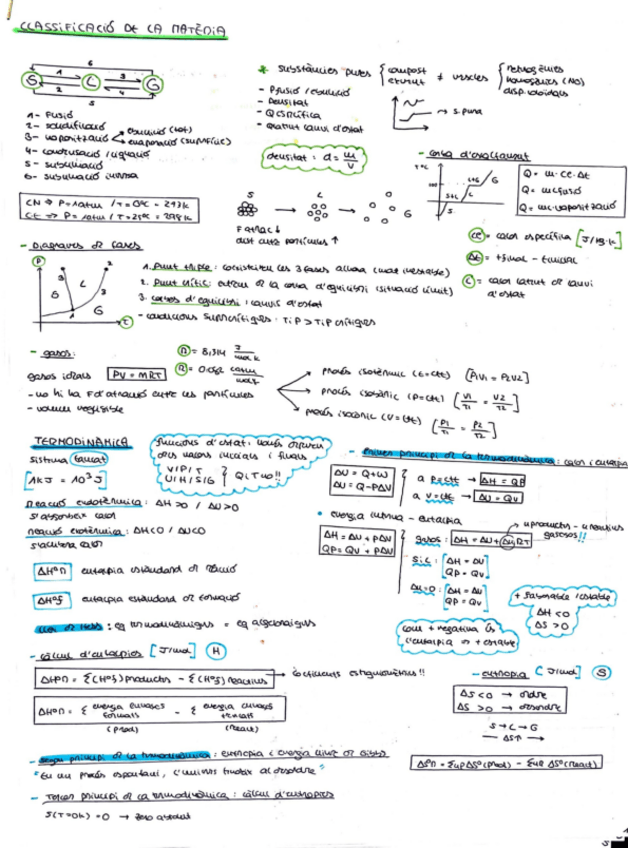 CLASSIFICACIÓ DE LA MATÈRIA
6
S 1 L 3 G
2 4
5
1- Fusió
2- solidificació
3- vaporització
ebullició (tot)
evaporació (superfície)
4- condensació / liquació
5- sublimació
6- sublimació inversa
CN → P=1atm / T=0ºC = 273K
P=1atm / T=25ºC = 298K
* Substàncies pures { compost
element
≠ mescles { heterogènies
homogènies (NO)
disp. coloidals
- Pfusió / ebullició
- Densitat
- Qespecífica
- Qlatent canvi d'estat
s. pura
densitat = d = m/V
S L G
F atrac ↓
dist entre partícules ↑
- corba d'escalfament
T ºC
100
S S+L L L+G G
Q = m·ce·Δt
Q = mLfusió
Q = mLvaporització
ce = calor específica [J/kg·K]
Δt = tfinal - tinicial
L = calor latent de canvi
d'estat
- Diagrames de fases
P
S L G
1 2 3
T
1. Punt triple: coexisteixen les 3 fases alhora (molt inestable)
2. Punt crític: extrem de la corba d'equilibri (situació límit)
3. corbes d'equilibri: canvis d'estat
- condicions supercrítiques: T i P > T i P crítiques
- gasos:
R = 8,314 J/mol·K
R = 0,082 atm·L/mol·K
gasos ideals PV = nRT
- no hi ha F d'atracció entre les partícules
- volum negligible
procés isotèrmic (t=ctt) [P1V1 = P2V2]
procés isobàric (P=ctt) [V1/T1 = V2/T2]
procés isocòric (V=ctt) [P1/T1 = P2/T2]
TERMODINÀMICA
sistema tancat
[1kJ = 10³ J]
funcions d'estat: només depenen
dels valors inicials i finals
V|P|T
U|H|S|G } Q i T no!!
Reacció endotèrmica: ΔH>0 / ΔU>0
s'absorbeix calor
reacció exotèrmica: ΔH<0 / ΔU<0
s'allibera calor
ΔHºr entalpia estàndard de reacció
ΔHºf entalpia estàndard de formació
Llei de Hess: eq termodinàmiques = eq algebraiques
- Primer principi de la termodinàmica: calor i entalpia
ΔU = Q+W
ΔU = Q-PΔV
a P=ctt → ΔH = QP
a V=ctt → ΔU = QV
• energia interna - entalpia
ΔH = ΔU + PΔV
QP = QV + PΔV
gasos: ΔH = ΔU + ΔnRT
nproductes - nreactius
gasosos!!
S i L: [ΔH = ΔU
QP = QV]
Δn=0: [ΔH = ΔU
QP = QV]
+ favorable / estable
ΔH<0
ΔS>0
com + negativa és
l'entalpia → + estable
- càlcul d'entalpies [J/mol] H
ΔHºr = Σ(Hºf)productes - Σ(Hºf)reactius → coeficients estequiomètrics!!
ΔHºr = Σ energia enllaços formats - Σ energia enllaços trencats
(prod) (react)
- entropia [J/mol] S
ΔS<0 → ordre
ΔS>0 → desordre
S→L→G
ΔS↑
- Segon principi de la termodinàmica: entropia i energia lliure de Gibbs
"En un procés espontani, l'univers tendeix al desordre"
ΔSºr = Σnp ΔSº(Prod) - Σnr ΔSº(React)
- Tercer principi de la termodinàmica: càlcul d'entropies
S(T=0K) = 0 → zero absolut